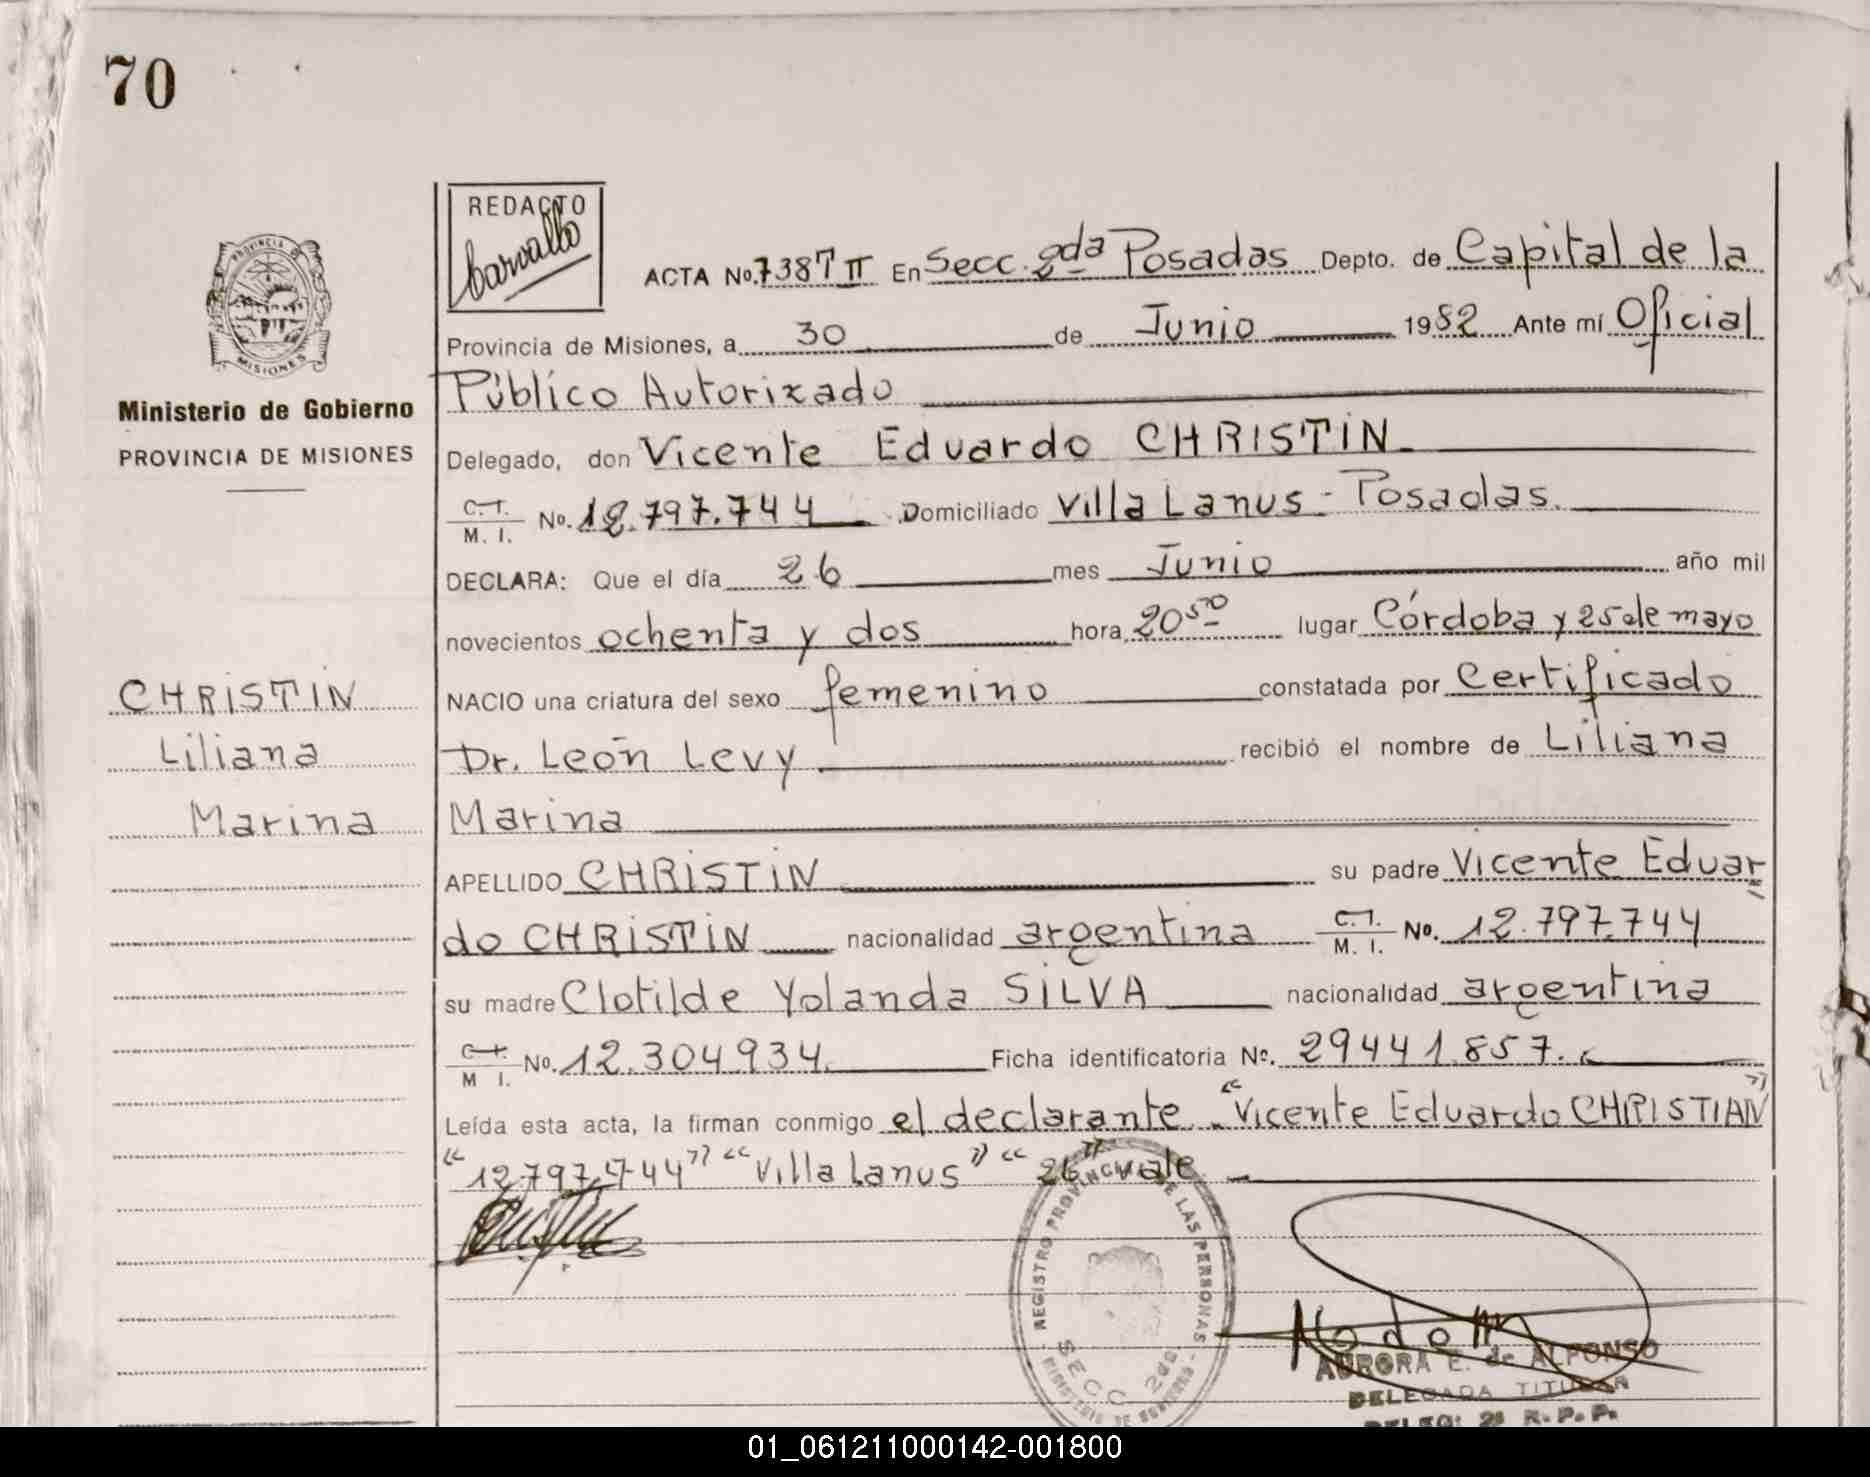 70
REDACTO
Carvallo
ACTA No. 738 T II En Secc. 2da Posadas Depto. de Capital de la
Provincia de Misiones, a 30 de Junio 1982 Ante mí Oficial
Público Autorizado
PROVINCIA DE MISIONES
Ministerio de Gobierno
PROVINCIA DE MISIONES
Delegado, don Vicente Eduardo CHRISTIN
C. I. M. I. No. 12.797.744 Domiciliado Villa Lanus - Posadas.
DECLARA: Que el día 26 mes Junio año mil
novecientos ochenta y dos hora 20 50 lugar Córdoba y 25 de mayo
CHRISTIN
Liliana
Marina
NACIO una criatura del sexo femenino constatada por Certificado
Dr. León Levy recibió el nombre de Liliana
Marina
APELLIDO CHRISTIN su padre Vicente Eduar
do CHRISTIN nacionalidad argentina C. I. M. I. No. 12.797.744
su madre Clotilde Yolanda SILVA nacionalidad argentina
C. I. M I. No. 12.304934. Ficha identificatoria No. 29441.857.
Leída esta acta, la firman conmigo el declarante. "Vicente Eduardo CHRISTIAN"
"12.797.744" "Villa Lanus" "26" vale.
REGISTRO PROVINCIAL DE LAS PERSONAS
SECC 2da
MINISTERIO DE GOBIERNO
AURORA E. de ALFONSO
DELEGADA TITULAR
DELEG: 2a R.P.P.
01_061211000142-001800